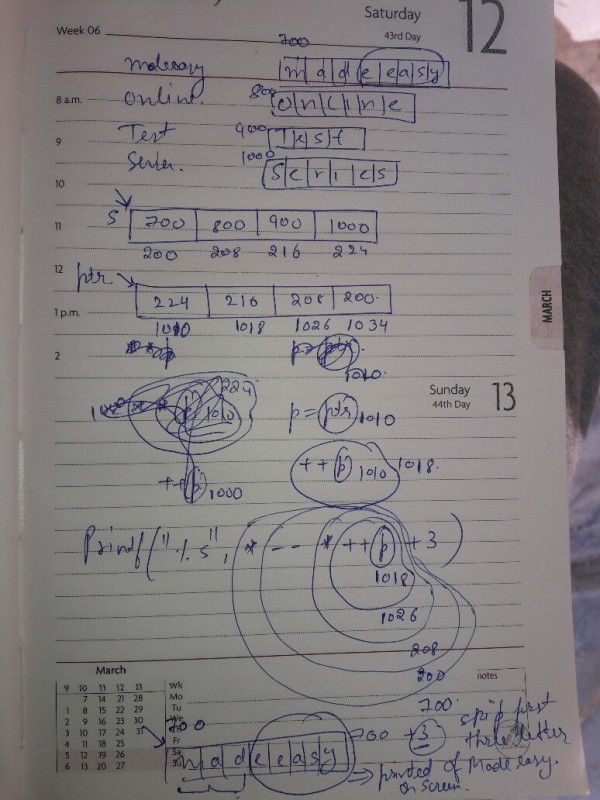 Saturday 12
Week 06 43rd Day
700
madeeasy m a d e e e a s y
8 a.m. Online. 800 O n l i n e
9 Test 900 T e s t
Series. 1000 S e r i e s
10
S
11 700 800 900 1000
200 208 216 224
12
ptr
1 p.m. 224 216 208 200
1010 1018 1026 1034
2
1010
MARCH
Sunday 13
44th Day
224
p 1010
p = ptr 1010
++p 1000
++p 1010 1018
Printf("%s", * -- * ++p +3)
1018
1026
208
200
notes
700
March
9 10 11 12 13 Wk
7 14 21 28 Mo
1 8 15 22 29 Tu
2 9 16 23 30 We
3 10 17 24 31 Th
4 11 18 25 Fr
5 12 19 26 Sa
6 13 20 27 Su
700 + 3 skip first
three letter
m a d e e e a s y
printed of Made easy.
on screen.